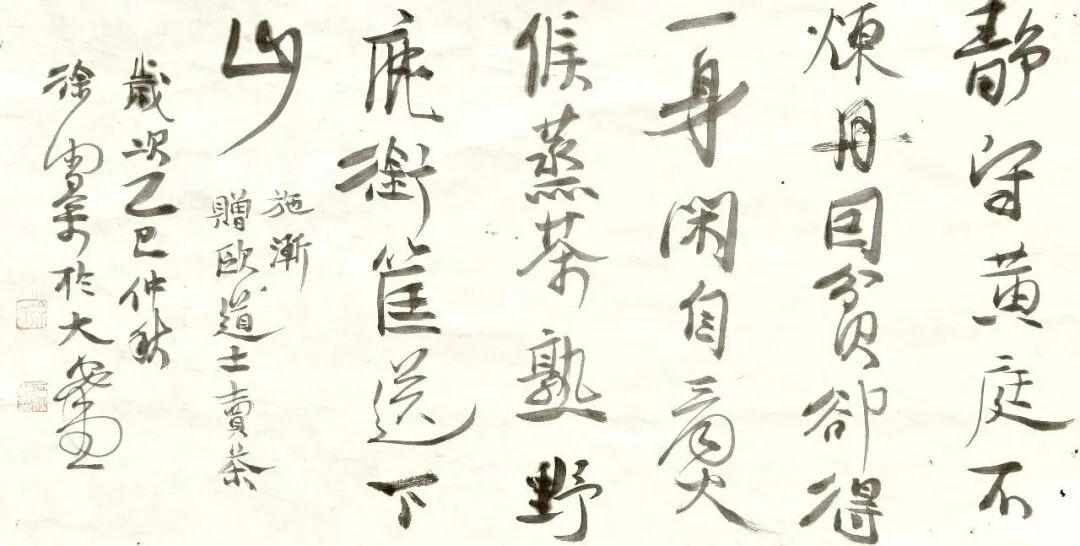 静守黄庭不
煉丹因貧卻得
一身閑自看火
候蒸茶熟野
鹿銜筐送下
山
施漸
贈歐道士賣茶
歲次乙巳仲秋
徐於大